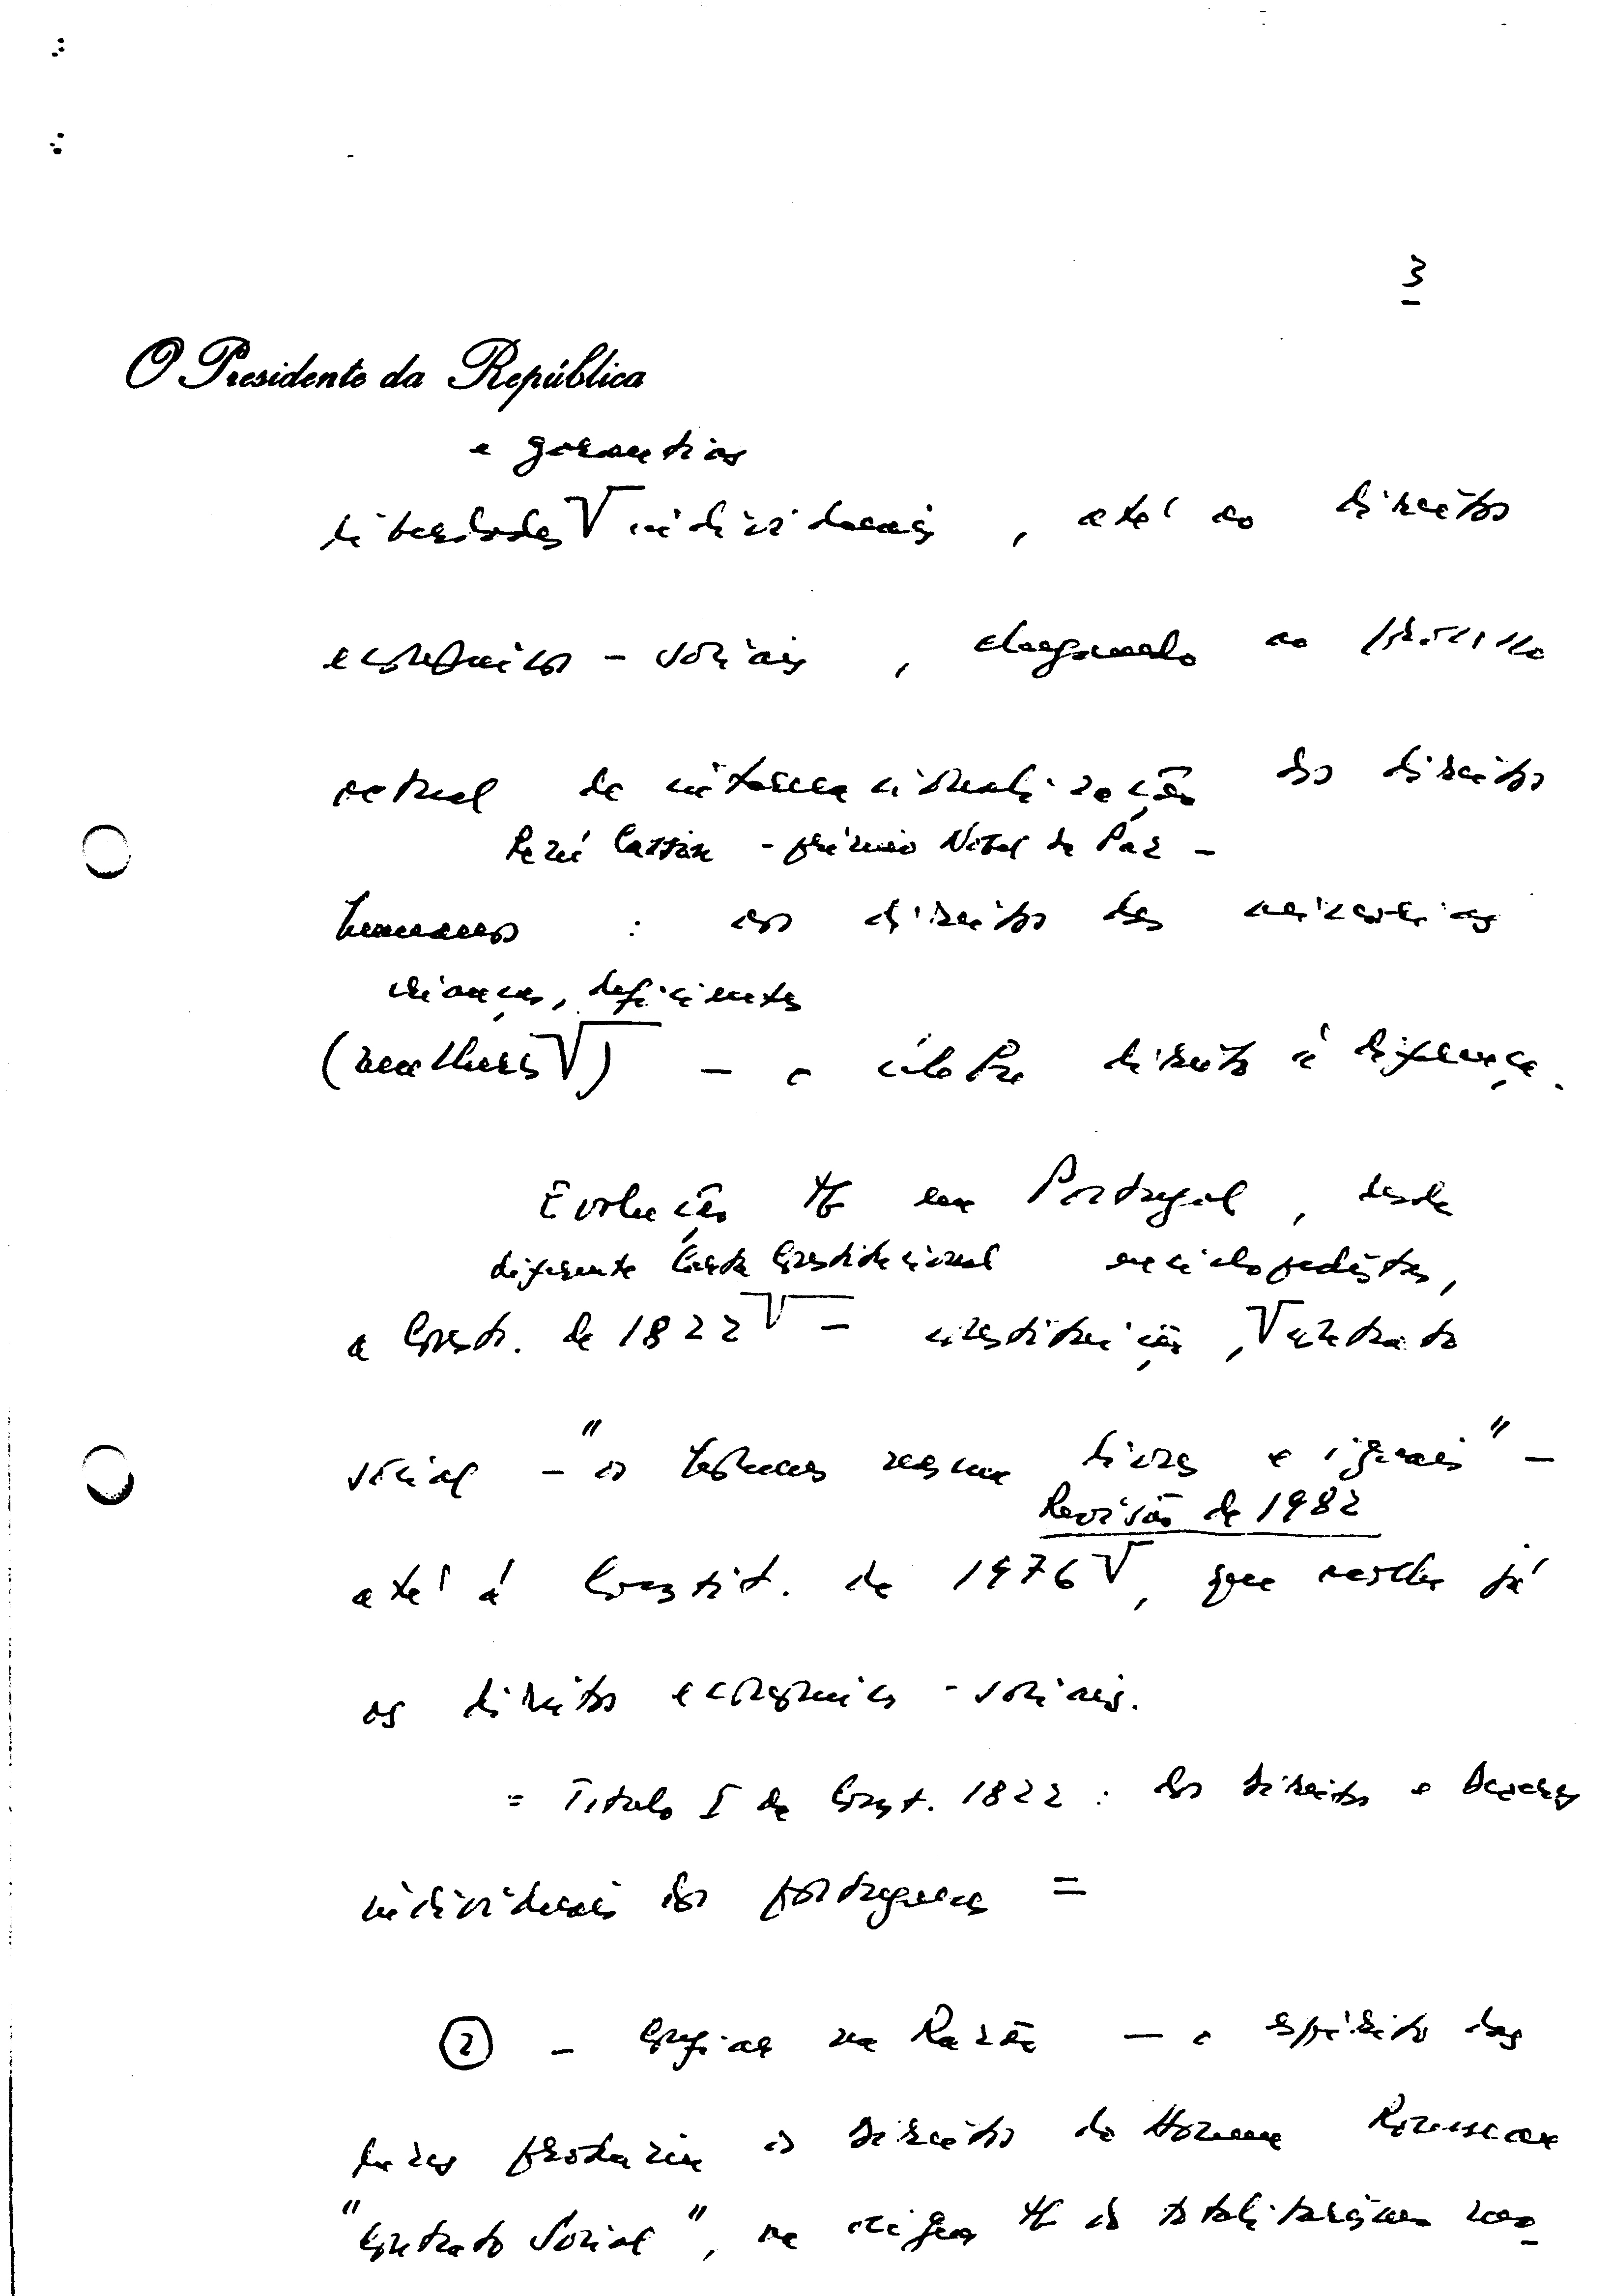 3
O Presidente da República
e garantias
liberdades √ individuais, até ao direitos
económicos-sociais, chegando ao processo
actual de internacionalização dos direitos
René Cassin - prémio Nobel da Paz -
humanos : os direitos das minorias
crianças, deficientes
(mulheres √) - o célebre direito à diferença.
Evolução tb em Portugal, desde
diferente Carta Constitucional enciclopedistas,
a Const. de 1822 √ - constituição, √ contrato
social - "os homens nascem livres e iguais" -
Revisão de 1982
até à Constit. de 1976 √, que acolhe já
os direitos económicos-sociais.
= Titulo I da Const. 1822 : dos direitos e deveres
individuais dos portugueses =
2 - Confiar na Razão - o espírito das
luzes produziu os direitos do Homem Rousseau
"Contrato Social", na origem tb do totalitarismo